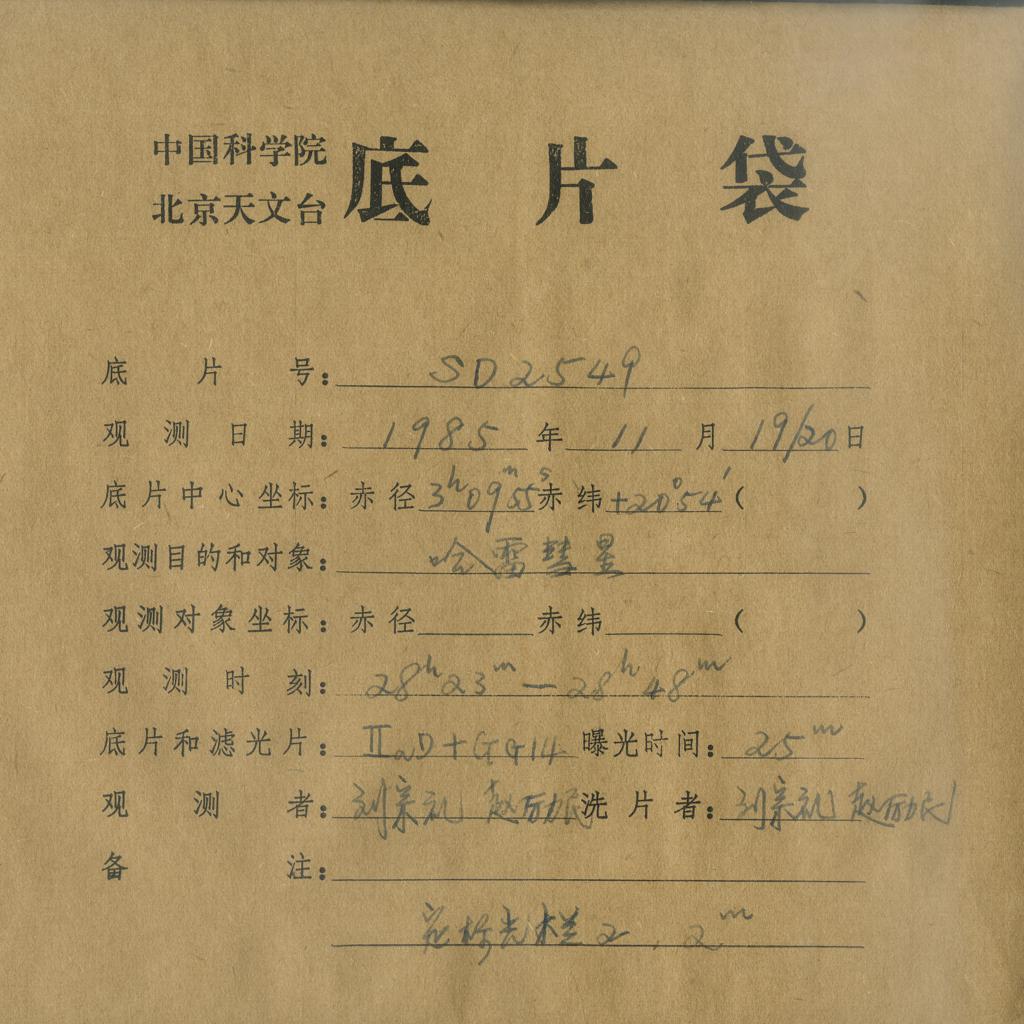 中国科学院
北京天文台 底片袋
底片号: SD2549
观测日期: 1985年 11月 19/20日
底片中心坐标: 赤径 3h09m55s 赤纬 +20°54′ ( )
观测目的和对象: 哈雷彗星
观测对象坐标: 赤径 赤纬 ( )
观测时刻: 28h23m — 28h48m
底片和滤光片: ⅡaD+GG14 曝光时间: 25m
观测者: 刘宗礼 赵励民 洗片者: 刘宗礼 赵励民
备注:
定标光栏2, 2m